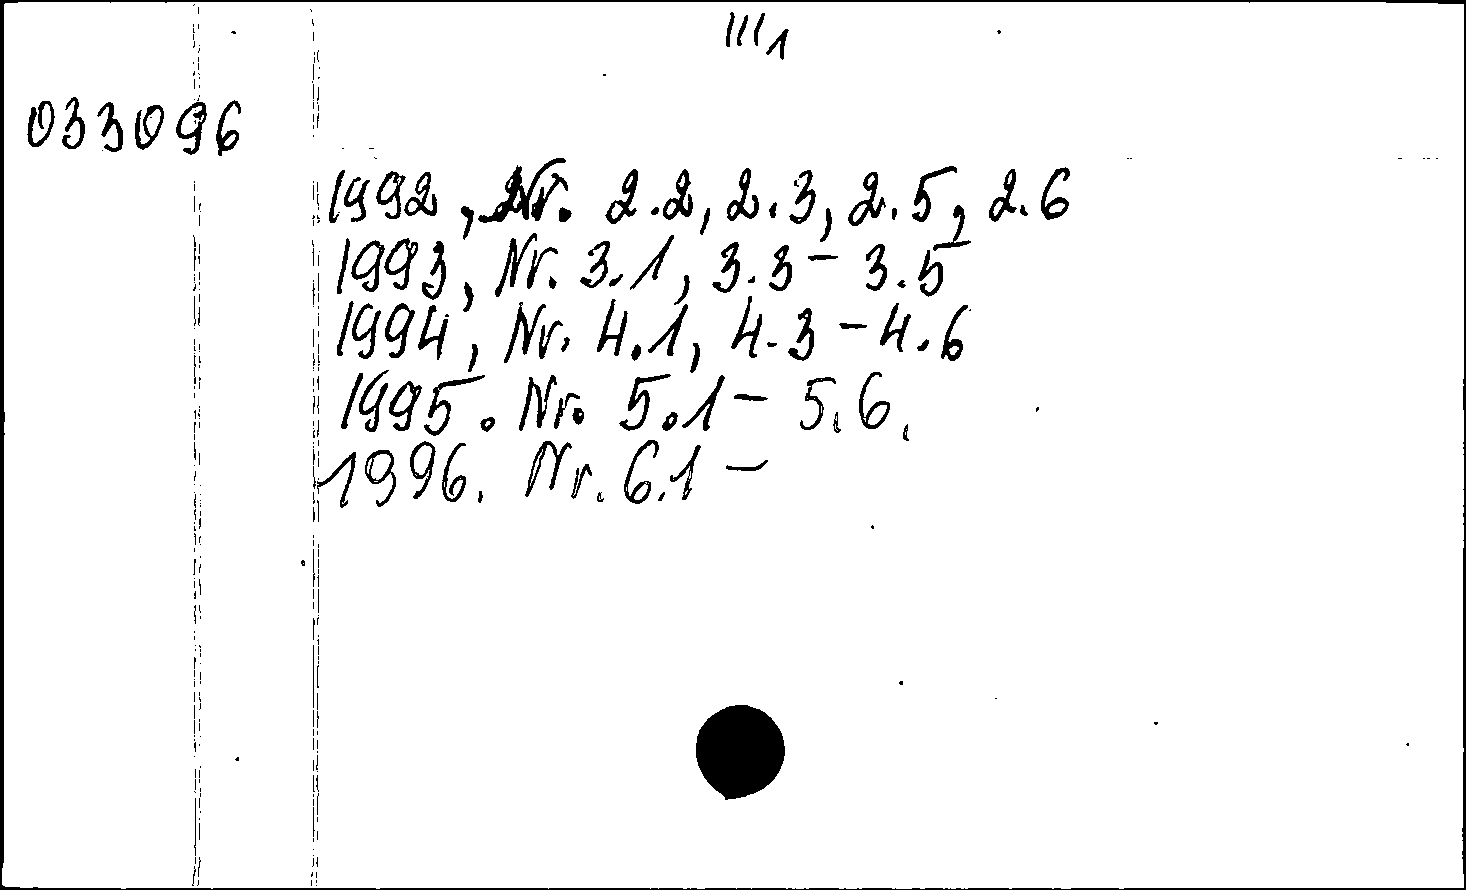 III 1
033096
1992, Nr. 2.2, 2.3, 2.5, 2.6
1993, Nr. 3.1, 3.3 - 3.5
1994, Nr. 4.1, 4.3 - 4.6
1995. Nr. 5.1 - 5.6.
1996. Nr. 6.1 -